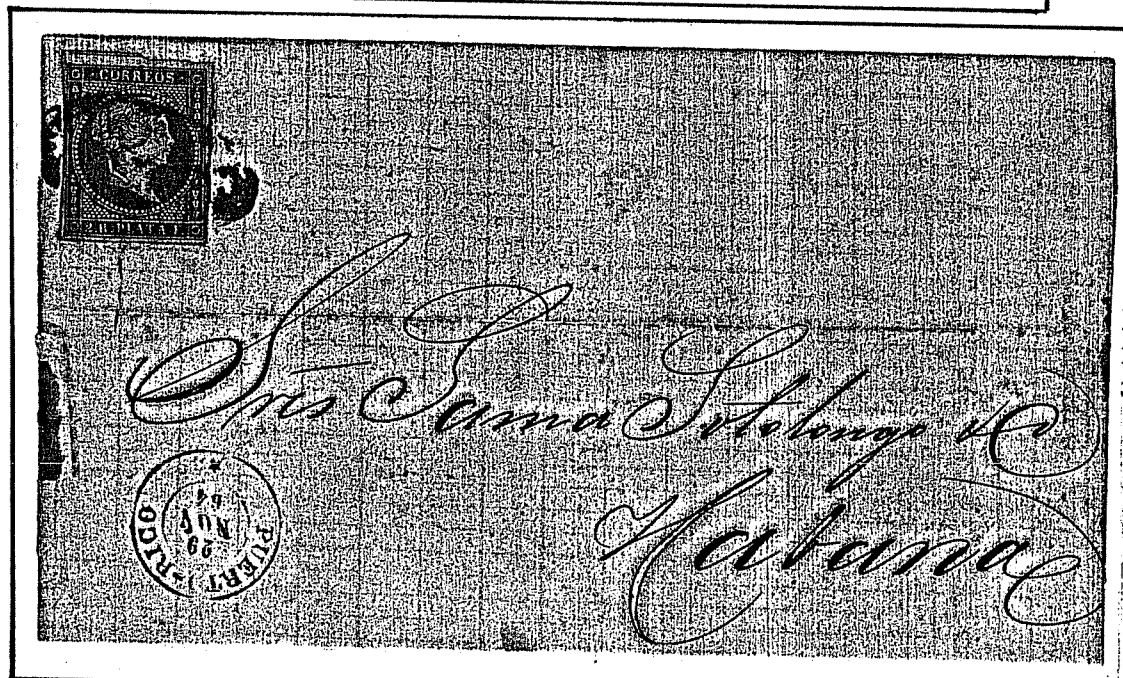 CORREOS
2 R. PLATA F.
Sres Sama Sotolongo y Ca
Habana
PUERTO-RICO
29
NOV
64